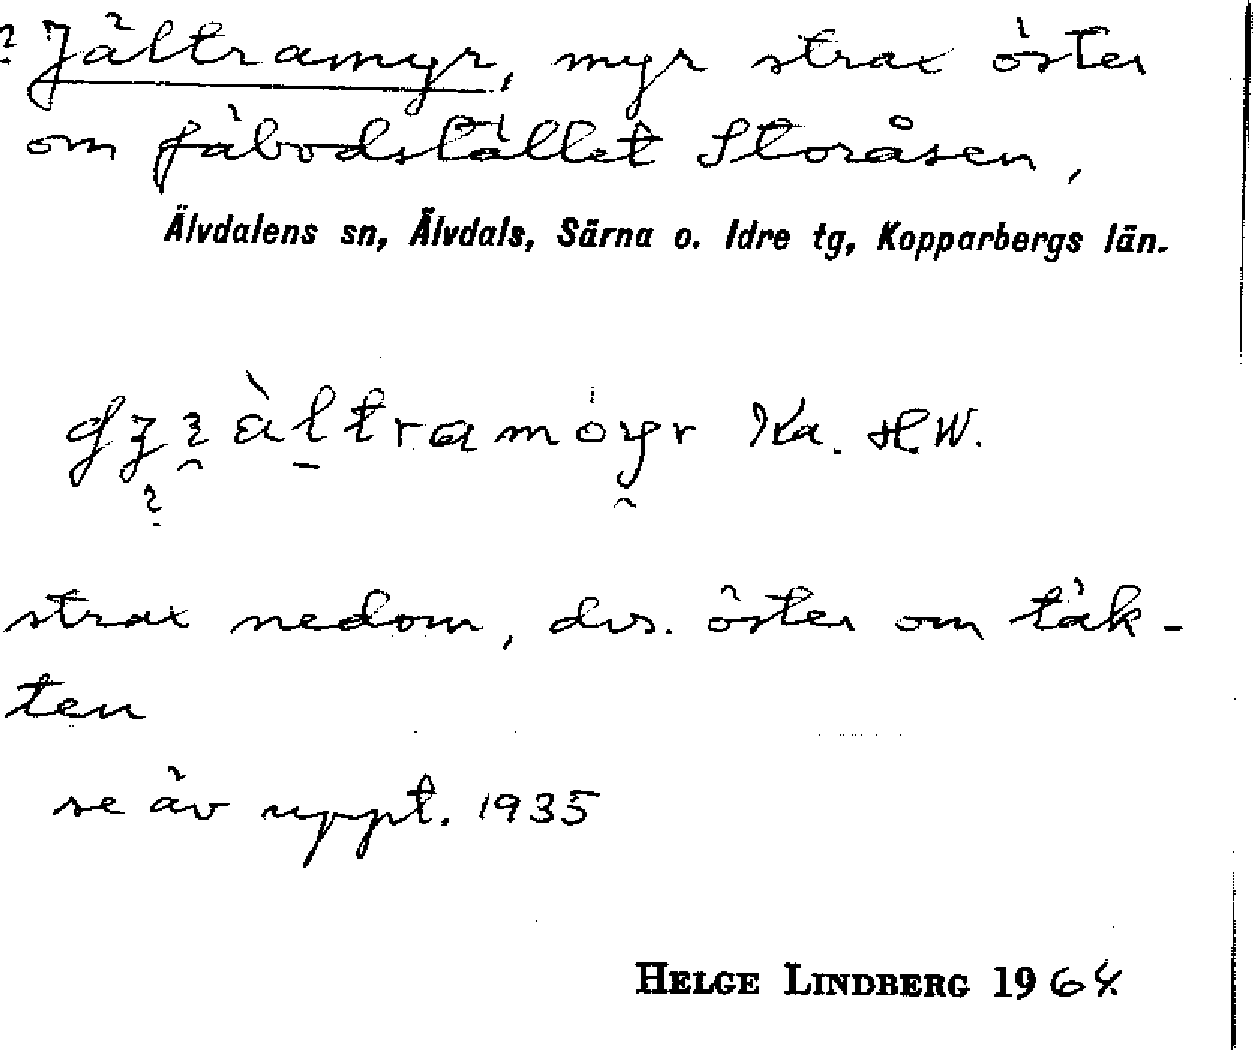 ? Jältramyr, myr strax öster
om fäbodstället Storåsen,
Älvdalens sn, Älvdals, Särna o. Idre tg, Kopparbergs län.
Ka. H.W.
strax nedom, dvs. öster om täk-
ten
se äv uppt. 1935
HELGE LINDBERG 1964